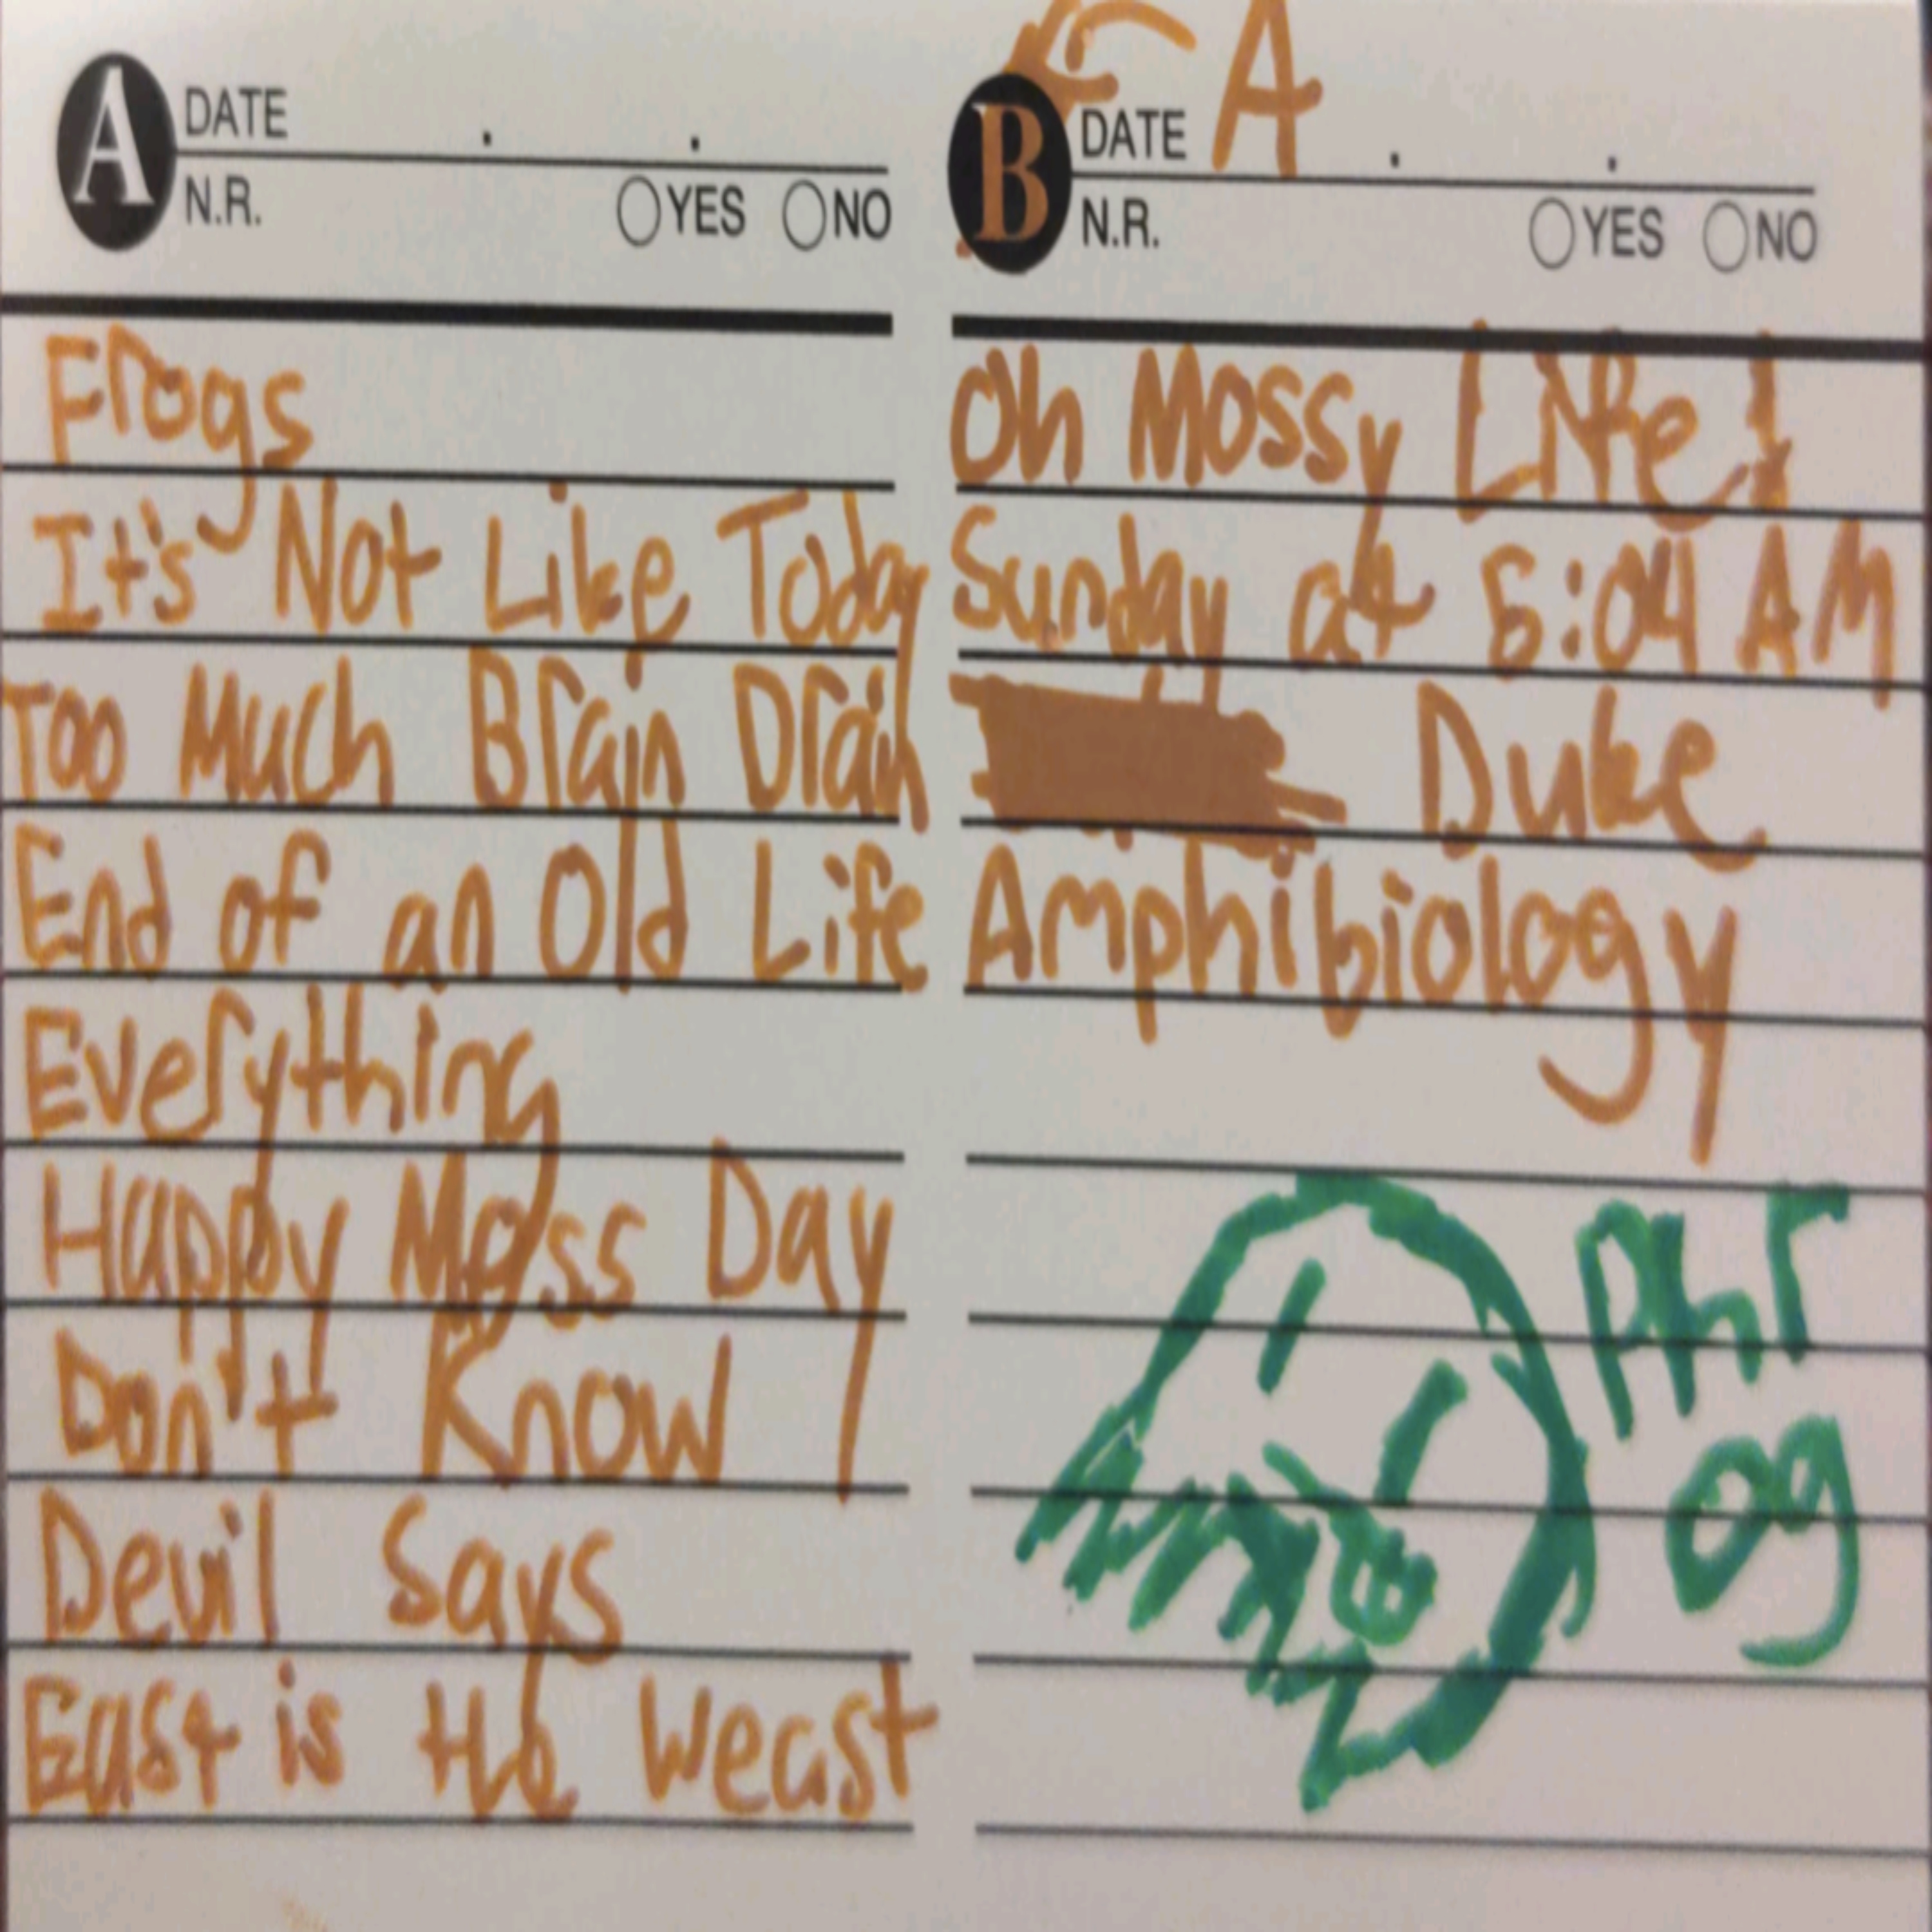 A DATE . .
N.R. YES NO
Frogs
It's Not Like Today
Too Much Brain Drain
End of an Old Life
Everything
Happy Moss Day
Don't Know
Devil Says
East is the Weast
A
B DATE . .
N.R. YES NO
Oh Mossy Life!
Sunday at 6:04 AM
Duke
Amphibiology
Phr
og